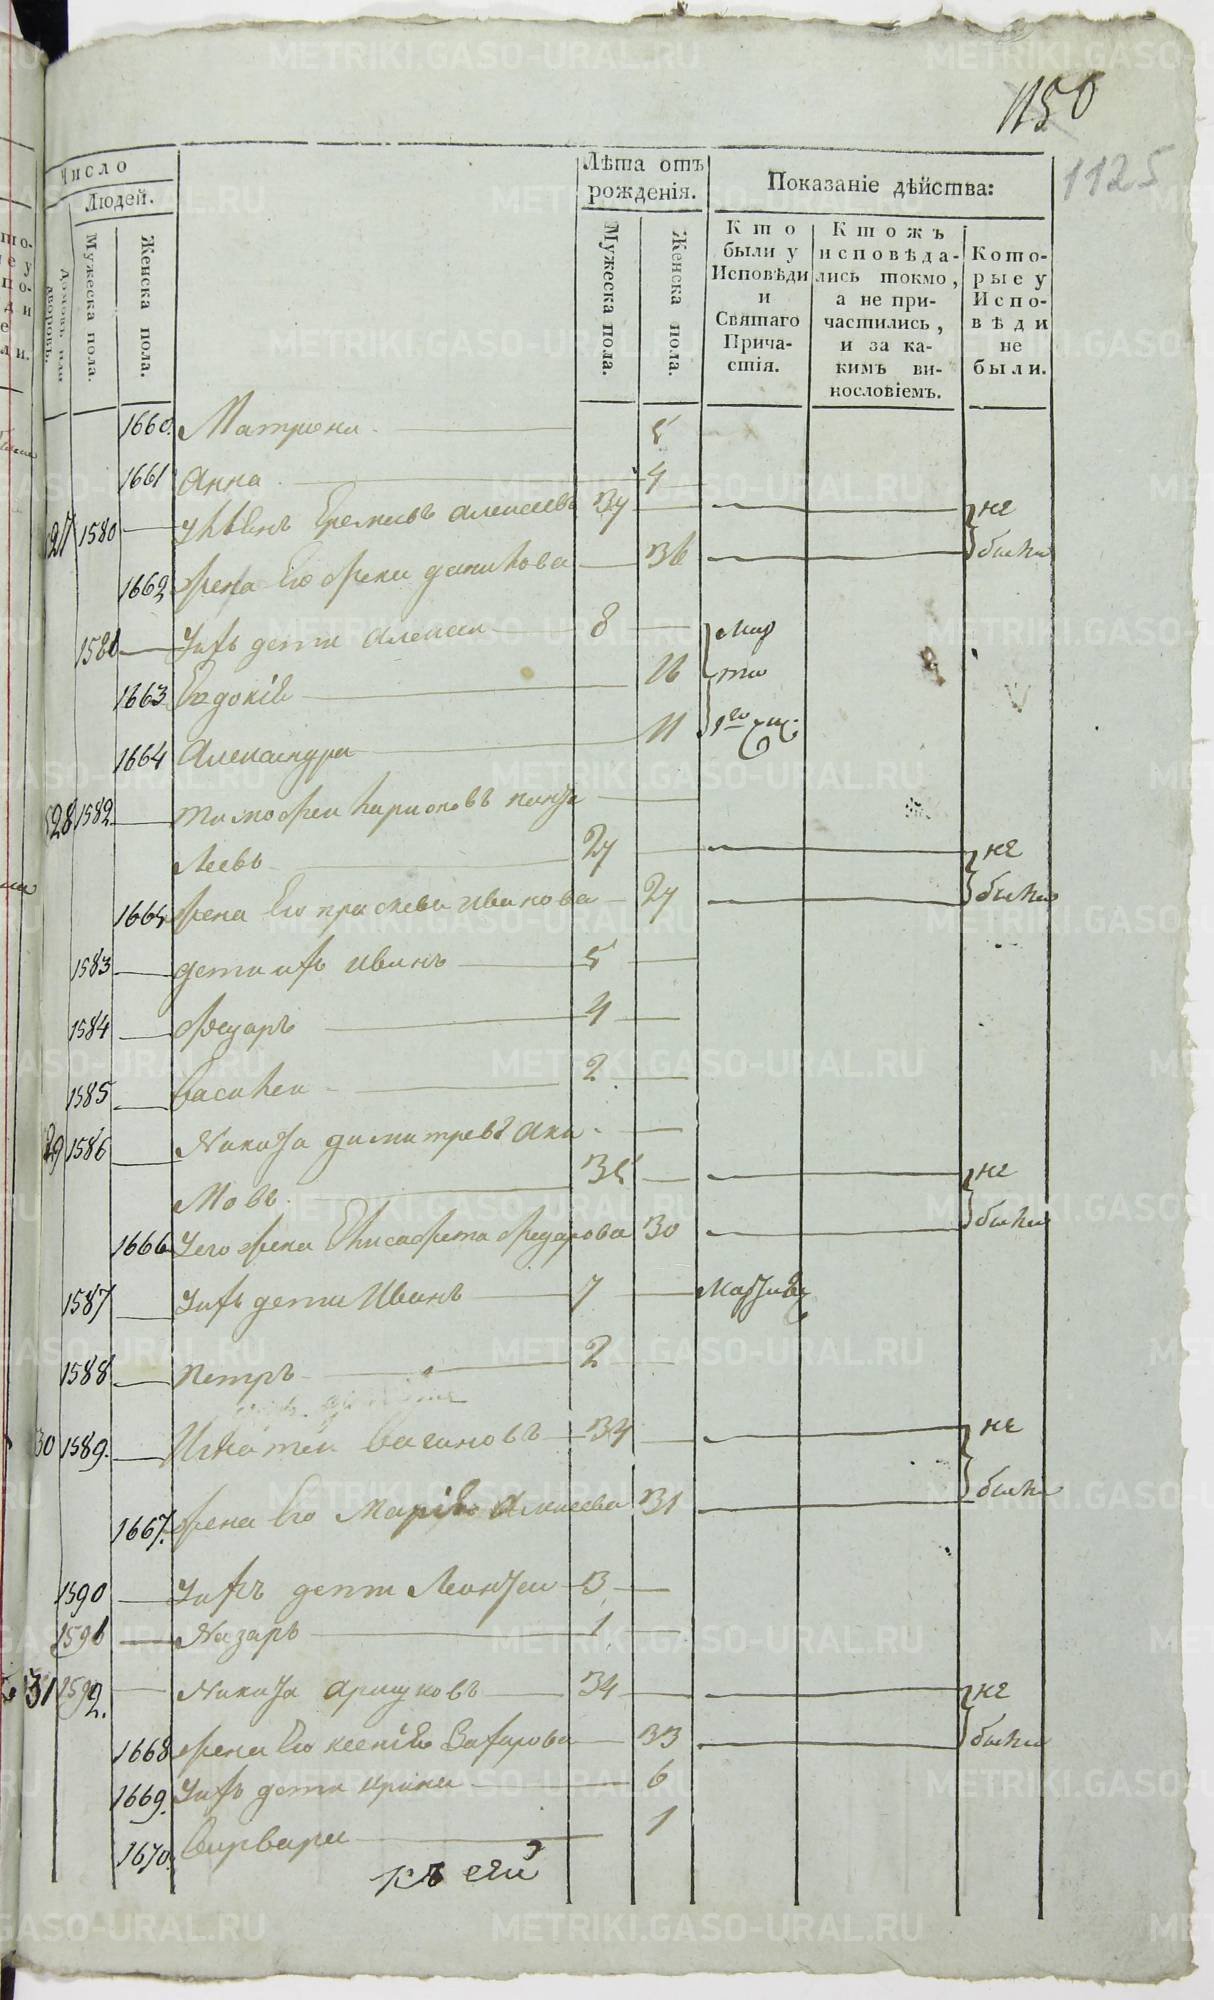 1150
1125
Число
Людей.
Лѣта отъ рожденія.
Показаніе дѣйства:
Домовъ или дворовъ.
Мужеска пола.
Женска пола.
Мужеска пола.
Женска пола.
Кто были у Исповѣди и Святаго Причастія.
Ктожъ исповѣдались токмо, а не причастились, и за какимъ винословіемъ.
Которые у Исповѣди не были.
1660. Матрена 5
1661 Анна 4
27 1580 Алексеевъ 34 не
1662 жена Его данилова 36 были
1581 Ихъ дети Алексеи 8
1663 Евдокія 16
1664 Александра 11
28 1582 тимофеи
леевъ 24 не
1665 жена Его прасковья иванова 24 были
1583 дети ихъ иванъ 5
1584 Федаръ 4
1585 Василеи 2
29 1586 Никита димитревъ Аки
мовъ 35 не
1666 Его жена Елисафета Федарова 30 были
1587 Ихъ дети Иванъ 7
1588 петръ 2
30 1589. Игнатеи Вагановъ 34 не
1667. жена Его Марія Алексеева 31 были
1590 Ихъ дети Леонтеи 3
1591 Назаръ 1
31 1592. Никита 34 не
1668 жена Его ксенія Захарова 33 были
1669. Ихъ дети ирина 6
1670. Варвара 1
METRIKI.GASO-URAL.RU